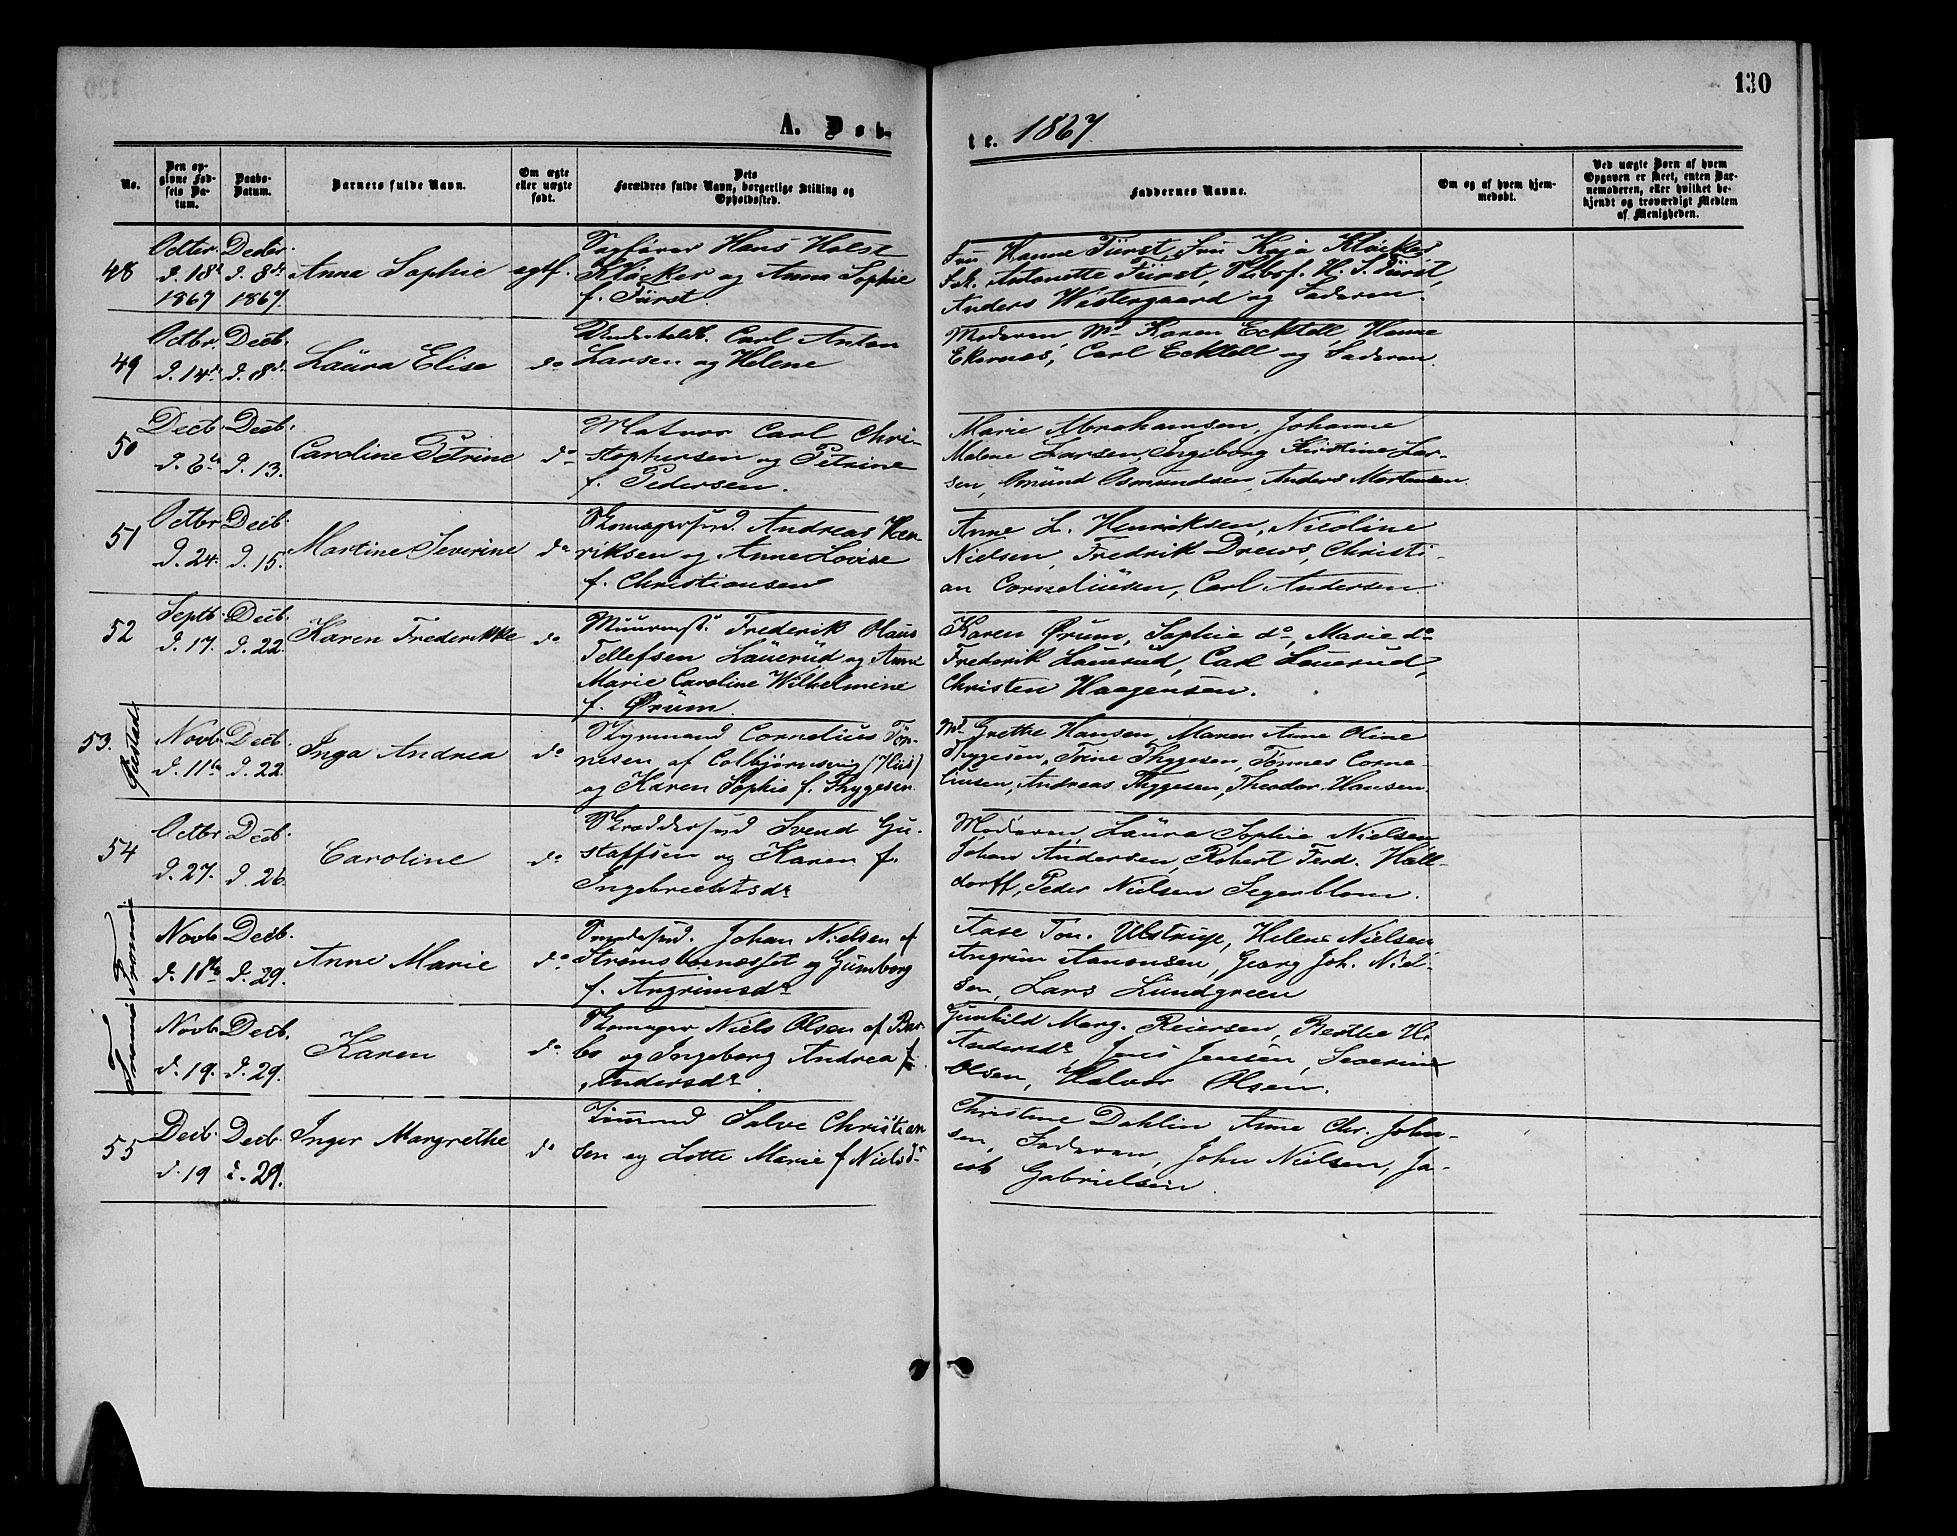 130
A. Døb-
te. 1867
No.
Den opgivne Fødsels Datum.
Daabs-Datum.
Barnets fulde Navn.
Om ægte eller uægte født.
Dets Forældres fulde Navn, borgerlige Stilling og Opholdssted.
Faddernes Navne.
Om og af hvem hjemmedøbt.
Ved uægte Børn af hvem Opgaven er skeet, enten Barnemoderen, eller hvilket bekjendt og troværdigt Medlem af Menigheden.
48
Octbr. d. 18de 1867
Decbr. d. 8de 1867.
Anna Sophie
ægtf.
Sagfører Hans Holst
Kløcker og Anna Sophie
f. Fürst.
Fru Hanne Fürst, Fru Kaja Kløcker,
Frk. Antonette Fürst, Skibsf. H. S. Fürst,
Anders Westergaard og Faderen.
49
Octbr. d. 14de
Decb. d. 8de
Laura Elise
do
Carl Anton
Larsen og Helene
Moderen, Md Karen Ecktell, Hanne
Ekernæs, Carl Ecktell og Faderen.
50
Decb. d. 6te
Decb. d. 13.
Caroline Petrine
do
Matros Carl Chri-
stophersen og Petrine
f. Pedersen.
Marie Abrahamsen, Johanne
Malene Larsen, Ingeborg Kirstine Lar-
sen, Omund Osmundsen, Anders Mortensen.
51
Octbr d. 24.
Decb. d. 15.
Martine Severine
do
Skomagersvd. Andreas Hen-
riksen og Anne Lovise
f. Christiansen
Anne L. Henriksen, Nicoline
Nielsen, Fredrik Drews, Christi-
an Corneliusen, Carl Andersen.
52
Septb. d. 17.
Decb. d. 22.
Karen Frederikke
do
Muurmst. Frederik Olaus
Tellefsen Lauerud og Anne
Marie Caroline Wilhelmine
f. Ørum.
Karen Ørum, Sophie do, Marie do
Frederik Lauerud, Carl Lauerud,
Christen Haagensen.
53.
Øiestad.
Novb. d. 11te
Decb. d. 22.
Inga Andrea
do
Styrmand Cornelius Tøn-
nesen af Colbjørnsvig (Hiis)
og Karen Sophie f. Thygesen
Md Grethe Hansen, Maren Anne Oline
Thygesen, Trine Thygesen, Tønnes Corne-
liusen, Andreas Thygesen, Theodor Hansen.
54
Octbr d. 27.
Decb. d. 26.
Caroline
do
Skræddersvd Svend Gu-
staffsen og Karen f.
Ingebrechtsdr
Moderen, Laura Sophie Nielsen,
Johan Andersen, Robert Ferd. Hall-
dorff, Peder Nielsen Segerblom.
Tromø
Novb d. 18de
Decb. d. 29.
Anne Marie
do
Smedesvd. Johan Nielsen af
Strømsbonæsset og Gunborg
f. Angrimsdr
Aase Ton. Ulstrup, Helene Nielsen
Angrim Aanonsen, Georg Joh. Niel-
sen, Lars Lundgreen
Tromø
Novb d. 19.
Decb. d. 29.
Karen
do
Skomager Niels Olsen af Bar-
bo og Ingeborg Andrea f.
Andersdr.
Gunhild Marg. Reiersen, Berthe H.
Andersdr, Jens Jensen, Severine
Olsen, Halvor Olsen.
55
Decb. d. 19
Decb d. 29.
Inger Margrethe
do
Tømmd Salve Christian
sen og Lotte Marie f Nielsdr
Christine Dahlin Anne Chr. John-
sen, Faderen, John Nielsen, Ja-
cob Gabrielsen.